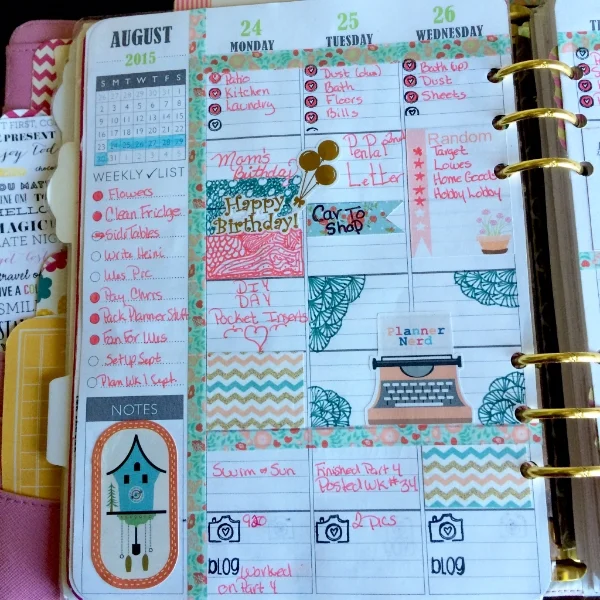 AUGUST
2015
S M T W T F S
WEEKLY ✓ LIST
Flowers
Clean Fridge
Side Tables
Write Heini
Wus Pic
Pay Churrs
Pack Planner Stuff
Fan For Wus
Setup Sept
Plan Wk 1 Sept
NOTES
24
MONDAY
Patio
Kitchen
Laundry
Mom's
Birthday
Happy
Birthday!
DIY
DAY
Pocket Inserts
Swim & Sun
920
blog
Worked
on Part 4
25
TUESDAY
Bath
Floors
Bills
Letter
Car To
Shop
Finished Part 4
Posted WK #34
2 pics
26
WEDNESDAY
Bath (up)
Dust
Sheets
Random
Target
Lowes
Home Goods
Hobby Lobby
Planner
Nerd
blog
FIRST, CO
PRESENT
MAGIC
travel
SMIL